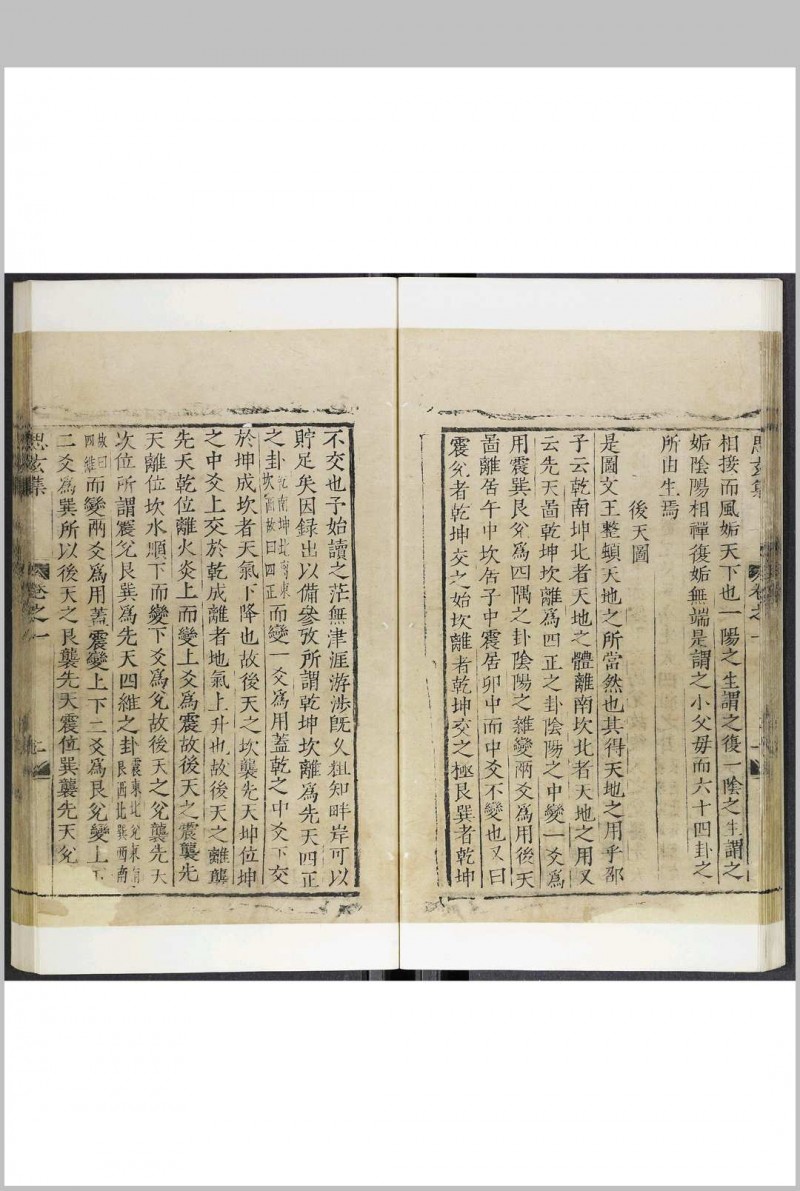 思玄集 卷之一 一
相接而風姤天下也一陽之生謂之復一陰之生謂之
姤陰陽相禪復姤無端是謂之小父毋而六十四卦之
所由生焉
後天圖
是圖文王整頓天地之所當然也其得天地之用乎邵
子云乾南坤北者天地之體離南坎北者天地之用又
云先天啚乾坤坎離爲四正之卦陰陽之中變一爻爲
用震巽艮兌爲四隅之卦陰陽之雜變兩爻爲用後天
啚離居午中坎居子中震居卯中而中爻不變也又曰
震兌者乾坤交之始坎離者乾坤交之極艮巽者乾坤
不交也予始讀之茫無津涯游涉旣久粗知畔岸可以
貯足矣因録出以備參攷所謂乾坤坎離爲先天四正
之卦乾南坤北离東坎西故曰四正而變一爻爲用蓋乾之中爻下交
於坤成坎者天氣下降也故後天之坎襲先天坤位坤
之中爻上交於乾成離者地氣上升也故後天之離襲
先天乾位離火炎上而變上爻爲震故後天之震襲先
天離位坎水順下而變下爻爲兌故後天之兌襲先天
次位所謂震兌艮巽爲先天四維之卦震東北兌東南艮西北巽西南
故曰四維而變兩爻爲用蓋震變上下二爻爲艮兌變上下
二爻爲巽所以後天之艮襲先天震位巽襲先天兌
思玄集 卷之一 二